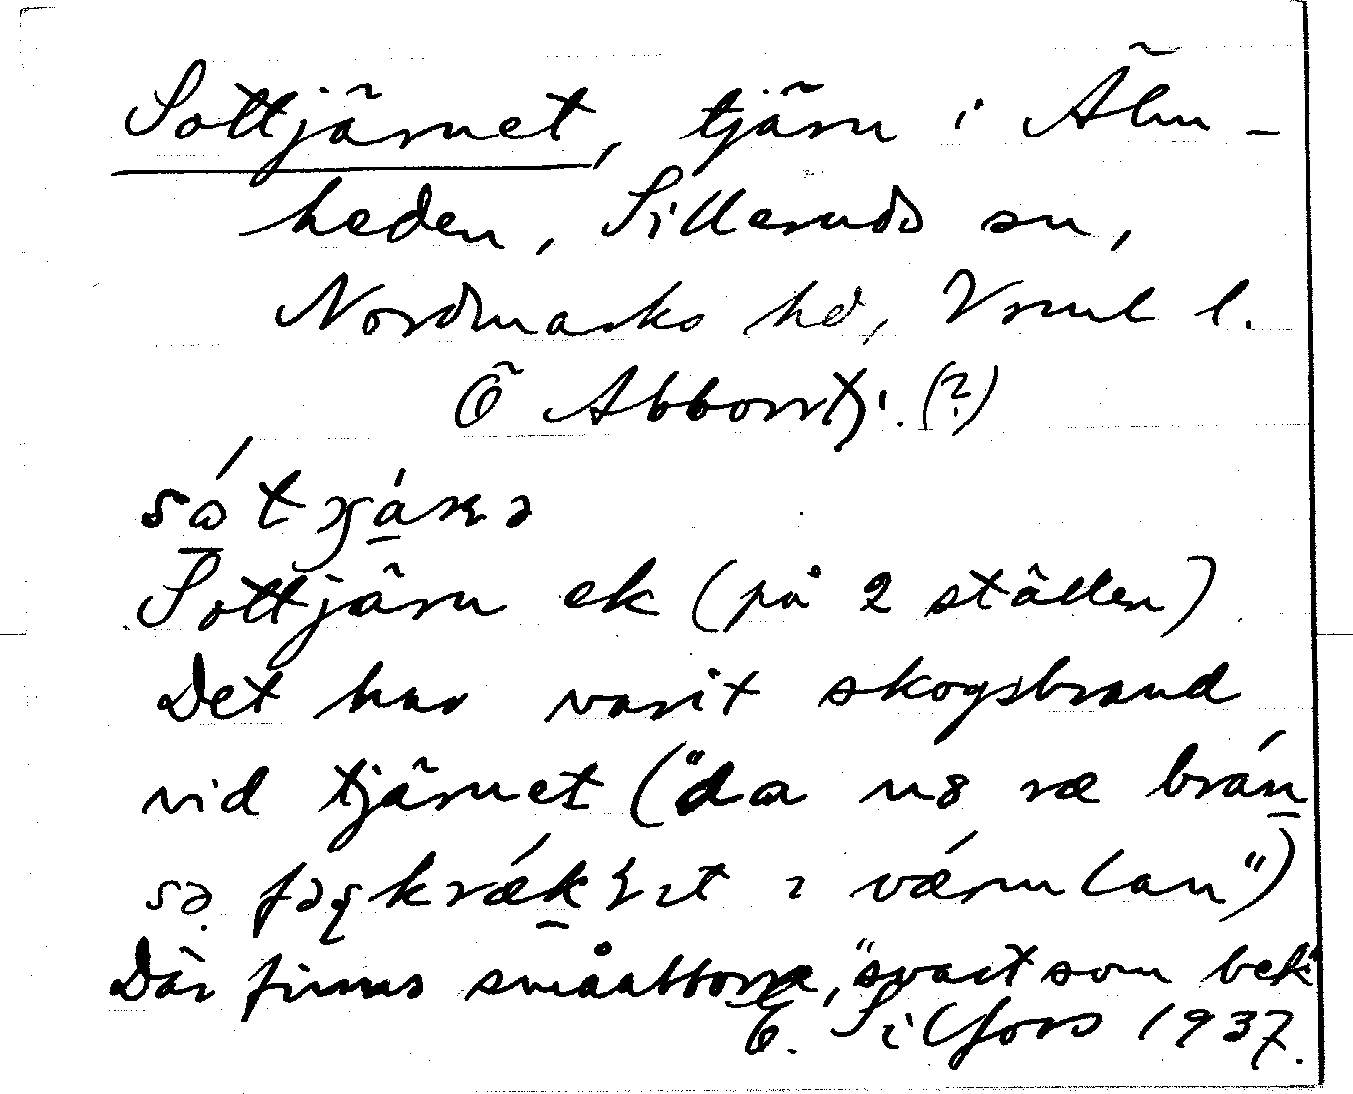 Sottjärnet, tjärn i Älm-
heden, Silleruds sn,
Nordmarks hd, Vrml l.
Ö Abborrtj. (?)
Sottjärn ek (på 2 ställen)
Det har varit skogsbrand
vid tjärnet ("da
i värmlan")
Där finns småabborre, "svart som bek"
E. Silfors 1937.